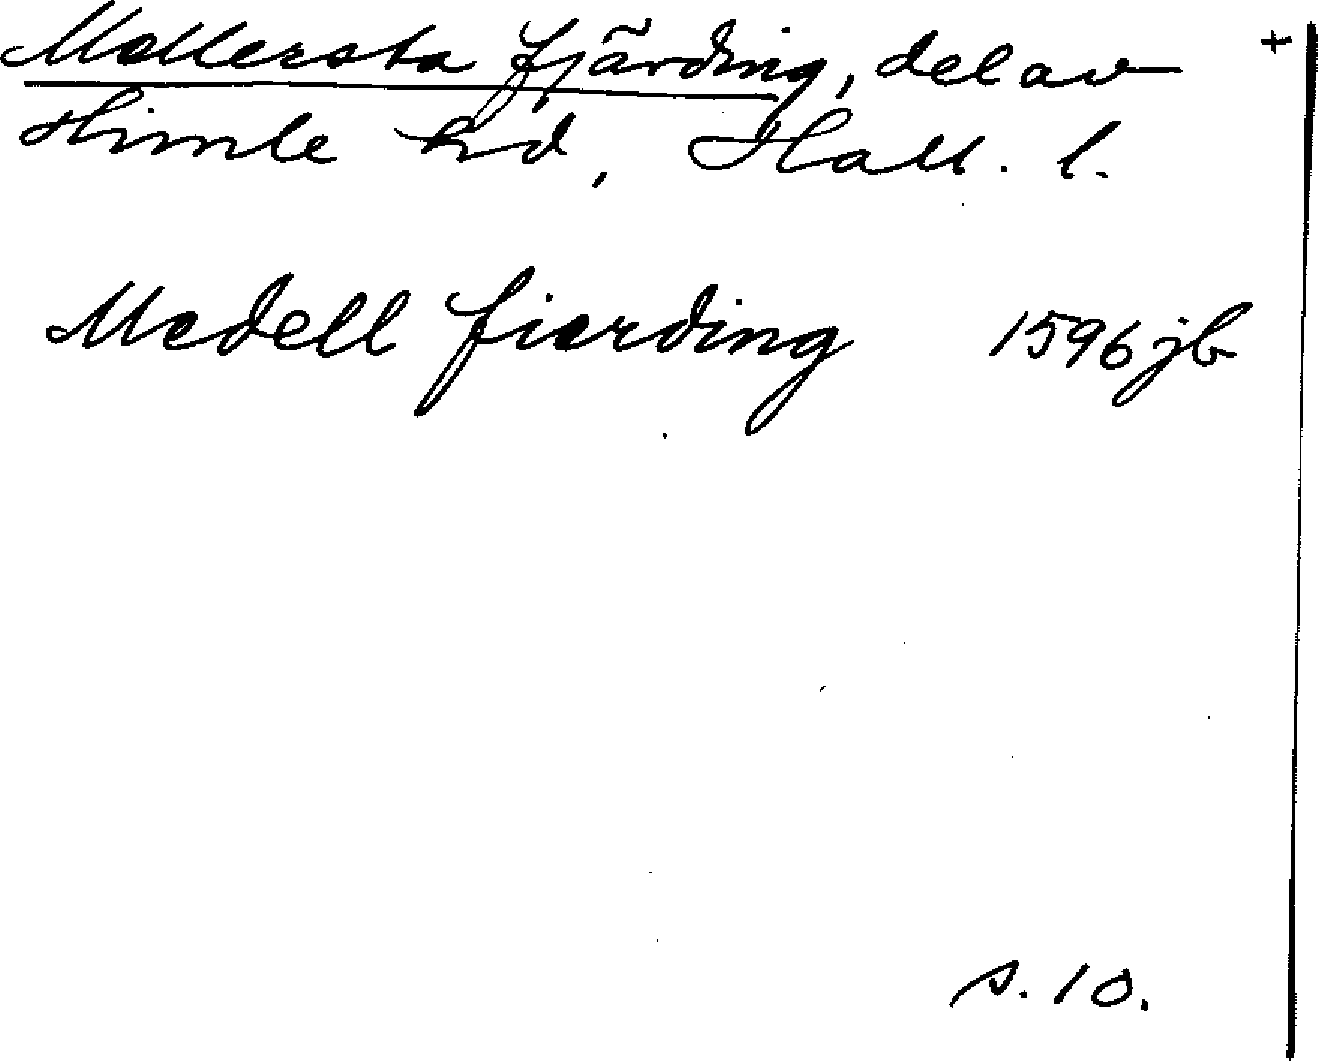 Mellersta fjärding, del av +
Himle hd, Hall. l.
Medell fierding 1596 jb
s. 10.